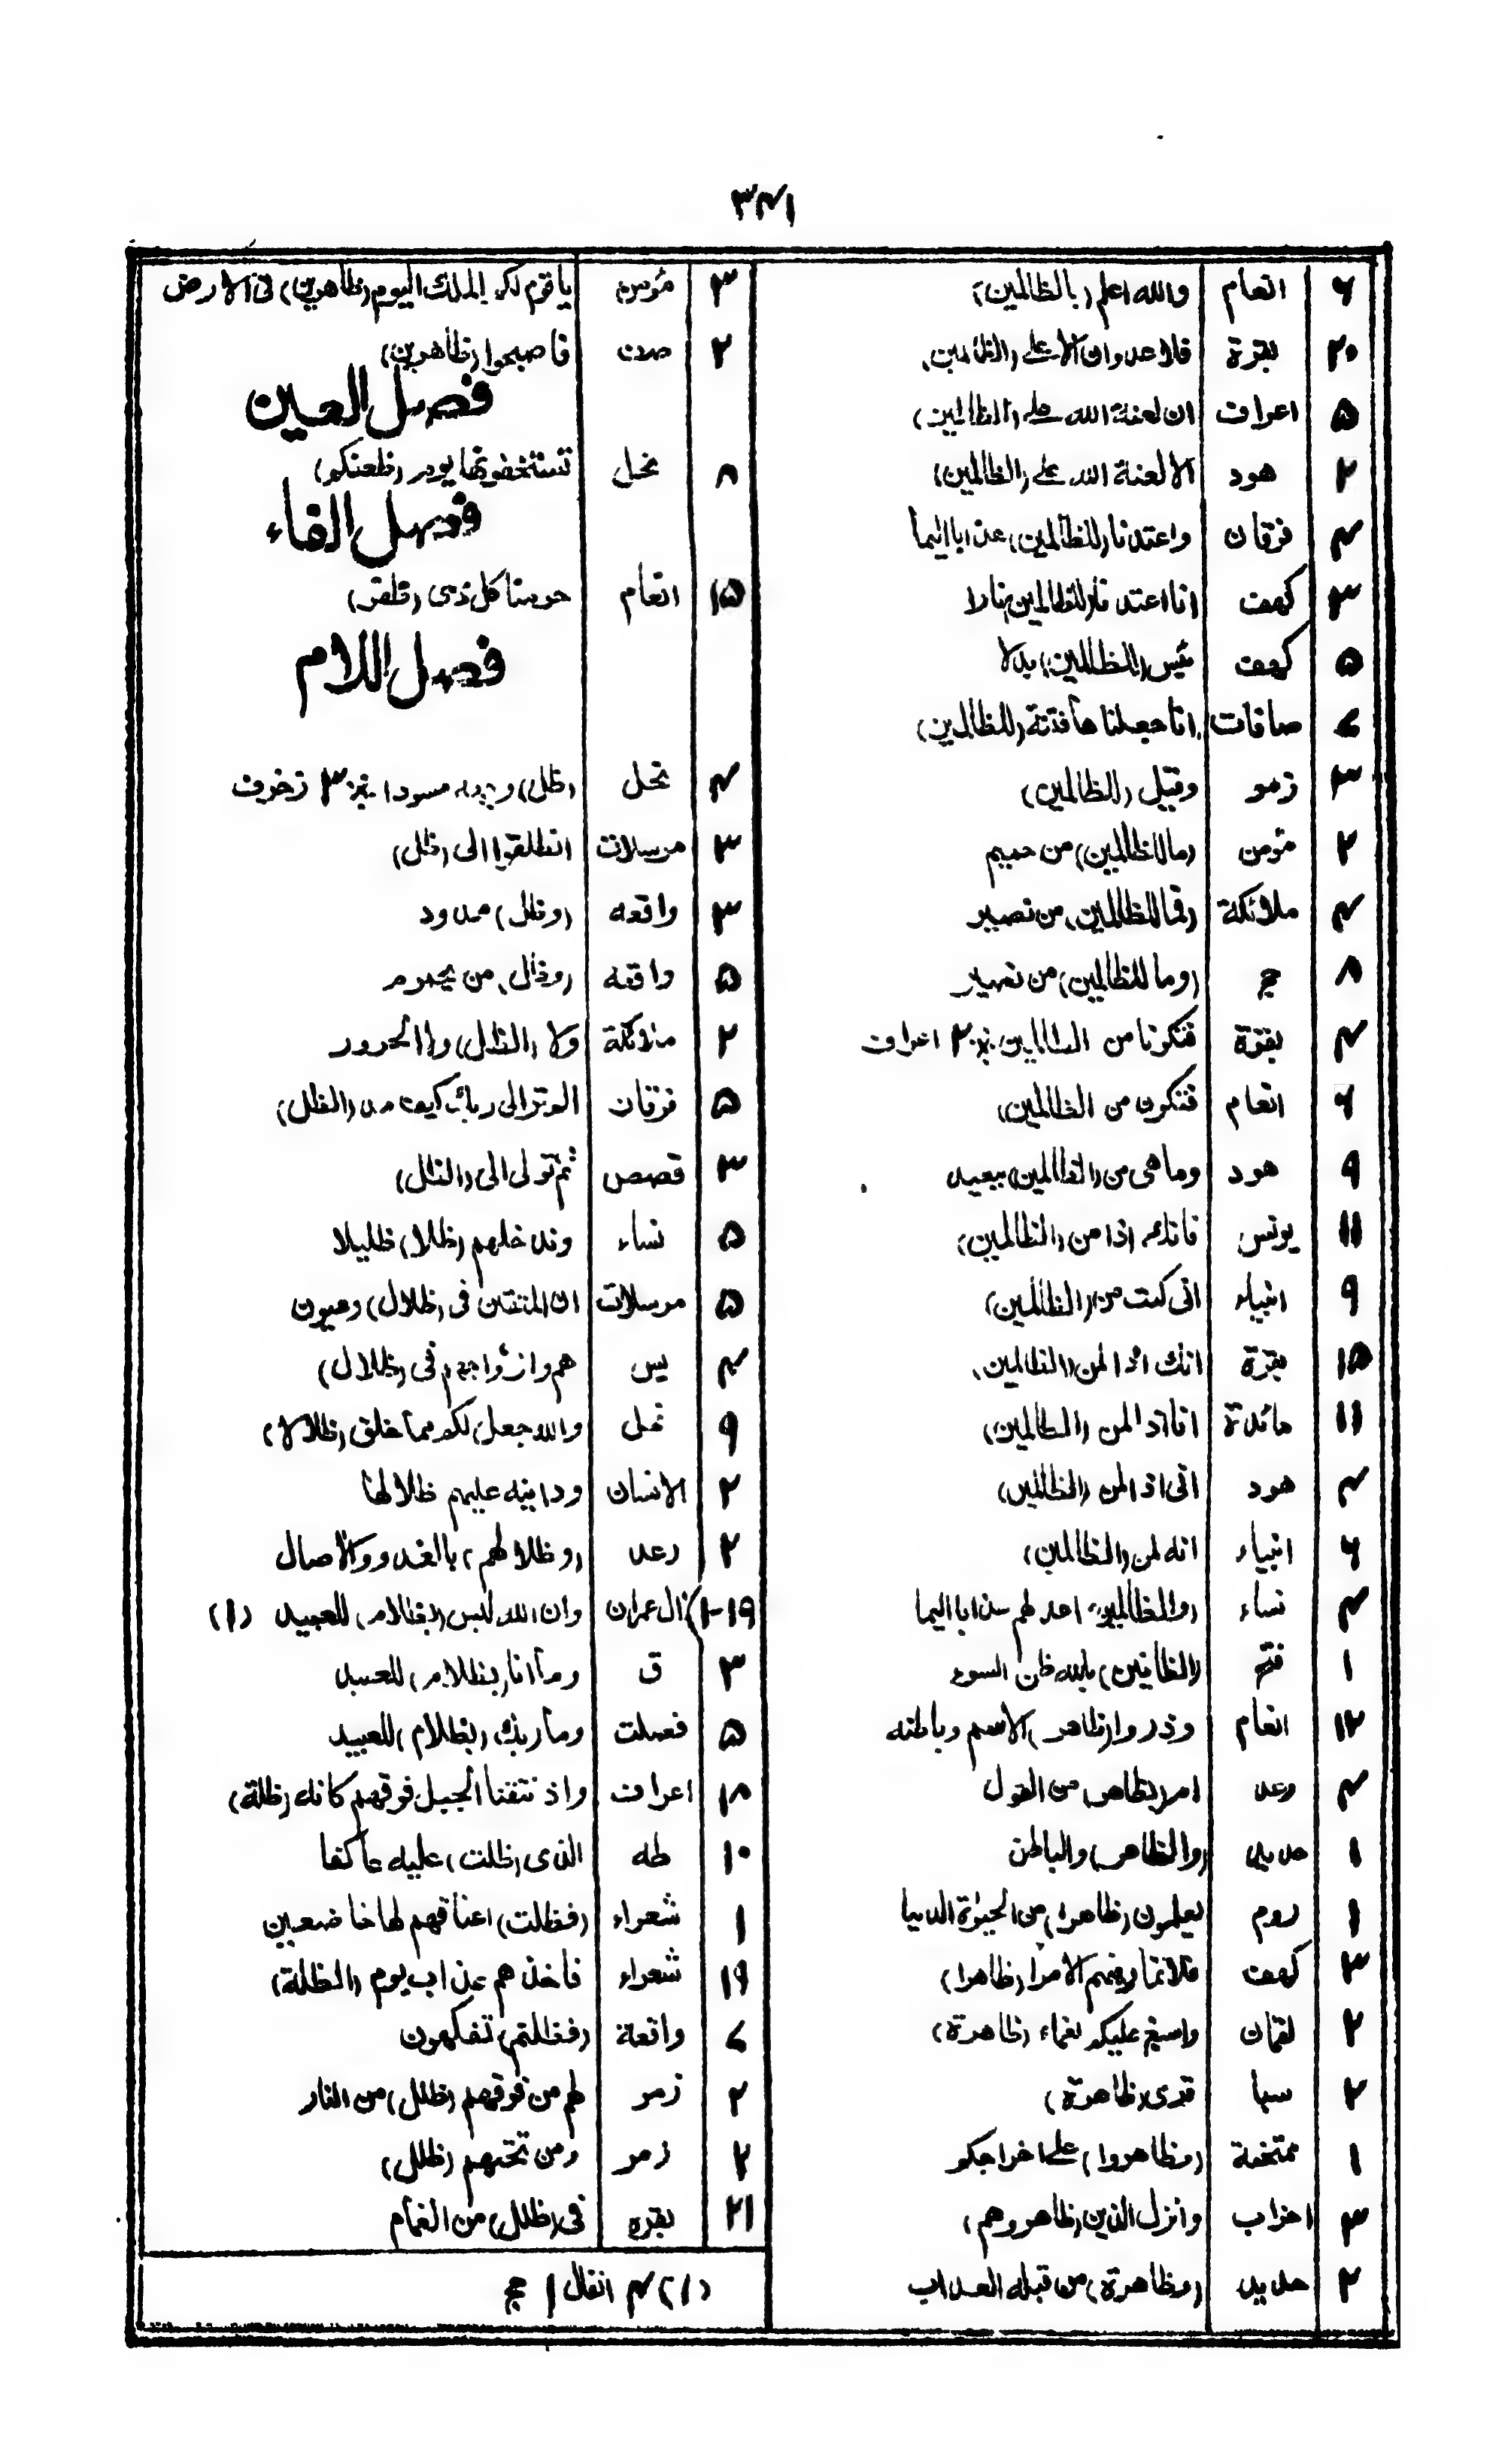 ٣٤١
٦ انعام والله اعلم (بالظالمين)
٢٠ بقرة فلا عدوان الا على (الظالمين)
٥ اعراف ان لعنة الله على (الظالمين)
٢ هود الا لعنة الله على (الظالمين)
٤ فرقان واعتدنا (للظالمين) عذابا اليما
٣ كهف انا اعتدنا (للظالمين) نارا
٥ كهف بئس (للظالمين) بدلا
٢ صافات انا جعلناها فتنة (للظالمين)
٣ زمر وقيل (للظالمين)
٢ مؤمن (ما للظالمين) من حميم
٤ ملائكة (فما للظالمين) من نصير
٨ حج (وما للظالمين) من نصير
٤ بقرة فتكونا من الظالمين ٢ اعراف
٦ انعام فتكون من الظالمين)
٩ هود وما هى من (الظالمين) ببعيد
١١ يونس فانك اذا من (الظالمين)
٩ انبياء انى كنت من (الظالمين)
١٥ بقرة انك اذا لمن (الظالمين)
١١ مائدة انا اذا لمن (الظالمين)
٤ هود انى اذا لمن (الظالمين)
٦ انبياء انه لمن (الظالمين)
٤ نساء (والظالمين) اعد لهم عذابا اليما
١ فتح (الظانين) بالله ظن السوء
١٢ انعام وذروا (ظاهر) الاثم وباطنه
٤ رعد ام (بظاهر) من القول
١ حديد (والظاهر) والباطن
١ روم يعلمون (ظاهرا) من الحيوة الدنيا
٣ كهف فلا تمار فيهم الا مرا (ظاهرا)
٢ لقمان واسبغ عليكم نعماء (ظاهرة)
٢ سبا قرى (ظاهرة)
١ ممتحنة (وظاهروا) على اخراجكم
٣ احزاب وانزل الذين (ظاهروهم)
٢ حديد (وظاهرة) من قبله العذاب
٣ مؤمن ياقوم لكم الملك اليوم (ظاهرين) فى الارض
٢ صف فاصبحوا (ظاهرين)
فصل العين
٨ نحل تستخفونها يوم (ظعنكم)
فصل الفاء
١٥ انعام حرمنا كل ذى (ظفر)
فصل اللام
٤ نحل (ظل) وجهه مسودا ٣ زخرف
٣ مرسلات انطلقوا الى (ظل)
٣ واقعه (وظل) ممدود
٥ واقعه (وظل) من يحموم
٢ ملائكة ولا (الظل) ولا الحرور
٥ فرقان الم تر الى ربك كيف مد (الظل)
٣ قصص ثم تولى الى (الظل)
٥ نساء وندخلهم (ظلا) ظليلا
٥ مرسلات ان المتقين فى (ظلال) وعيون
٤ يس هم وازواجهم فى (ظلال)
٩ نحل والله جعل لكم مما خلق (ظلالا)
٢ الانسان ودانيه عليهم ظلالها
٢ رعد (وظلالهم) بالغدو والاصال
١٩-١ ال عمران وان الله ليس (بظلام) للعبيد (١)
٣ ق وما انا (بظلام) للعبيد
٥ فصلت وما ربك (بظلام) للعبيد
١٨ اعراف واذ نتقنا الجبل فوقهم كانه (ظلة)
١٠ طه الذى (ظلت) عليه عاكفا
١ شعراء (فظلت) اعناقهم لها خاضعين
١٩ شعراء فاخذهم عذاب يوم (الظلة)
٢ واقعة (فظلتم) تفكهون
٢ زمر لهم من فوقهم (ظلل) من النار
٢ زمر ومن تحتهم (ظلل)
٢١ بقره فى (ظلل) من الغمام
(١) ٤ انفال ١ حج